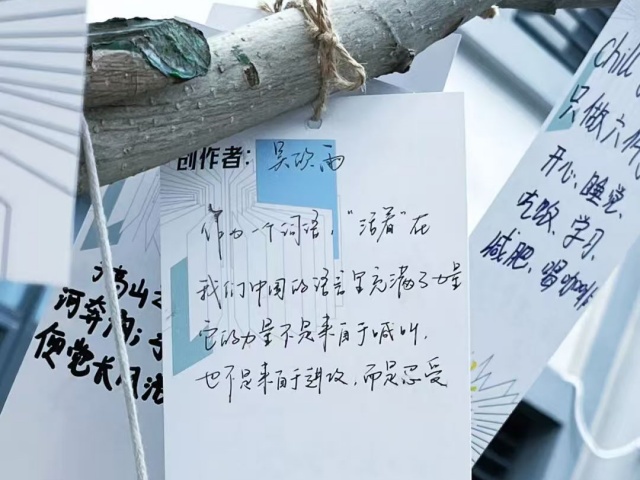 创作者：吴欣雨
作为一个词语，“活着”在
我们中国的语言里充满了力量
它的力量不是来自于喊叫，
也不是来自于进攻，而是忍受
高山
河奔沟；
便觉长风浩
chill
只做六件
开心、睡觉、
吃饭、学习、
减肥、喝咖啡